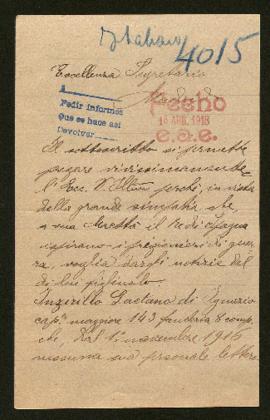 Italiano
4015
Eccellenza Segretario
Madrid
Pedir informes
Que se hace así
Devolver
Fecho
16 ABR. 1918
e.a.e.
Il sottoscritto si permette
pregare vivissimamente
l'Ecc. V. Ill.ma perchè, in vista
della grande simpatia che
a sua Maestà il Re di Spagna
ispirano i prigionieri di guer
ra, voglia dargli notizie del
di lui figliuolo
Ingrillo Gaetano di Ignazio
cap.le maggiore 143 fanteria 8 comp.
che, dal 1° novembre 1916
nessuna sua personale lettera